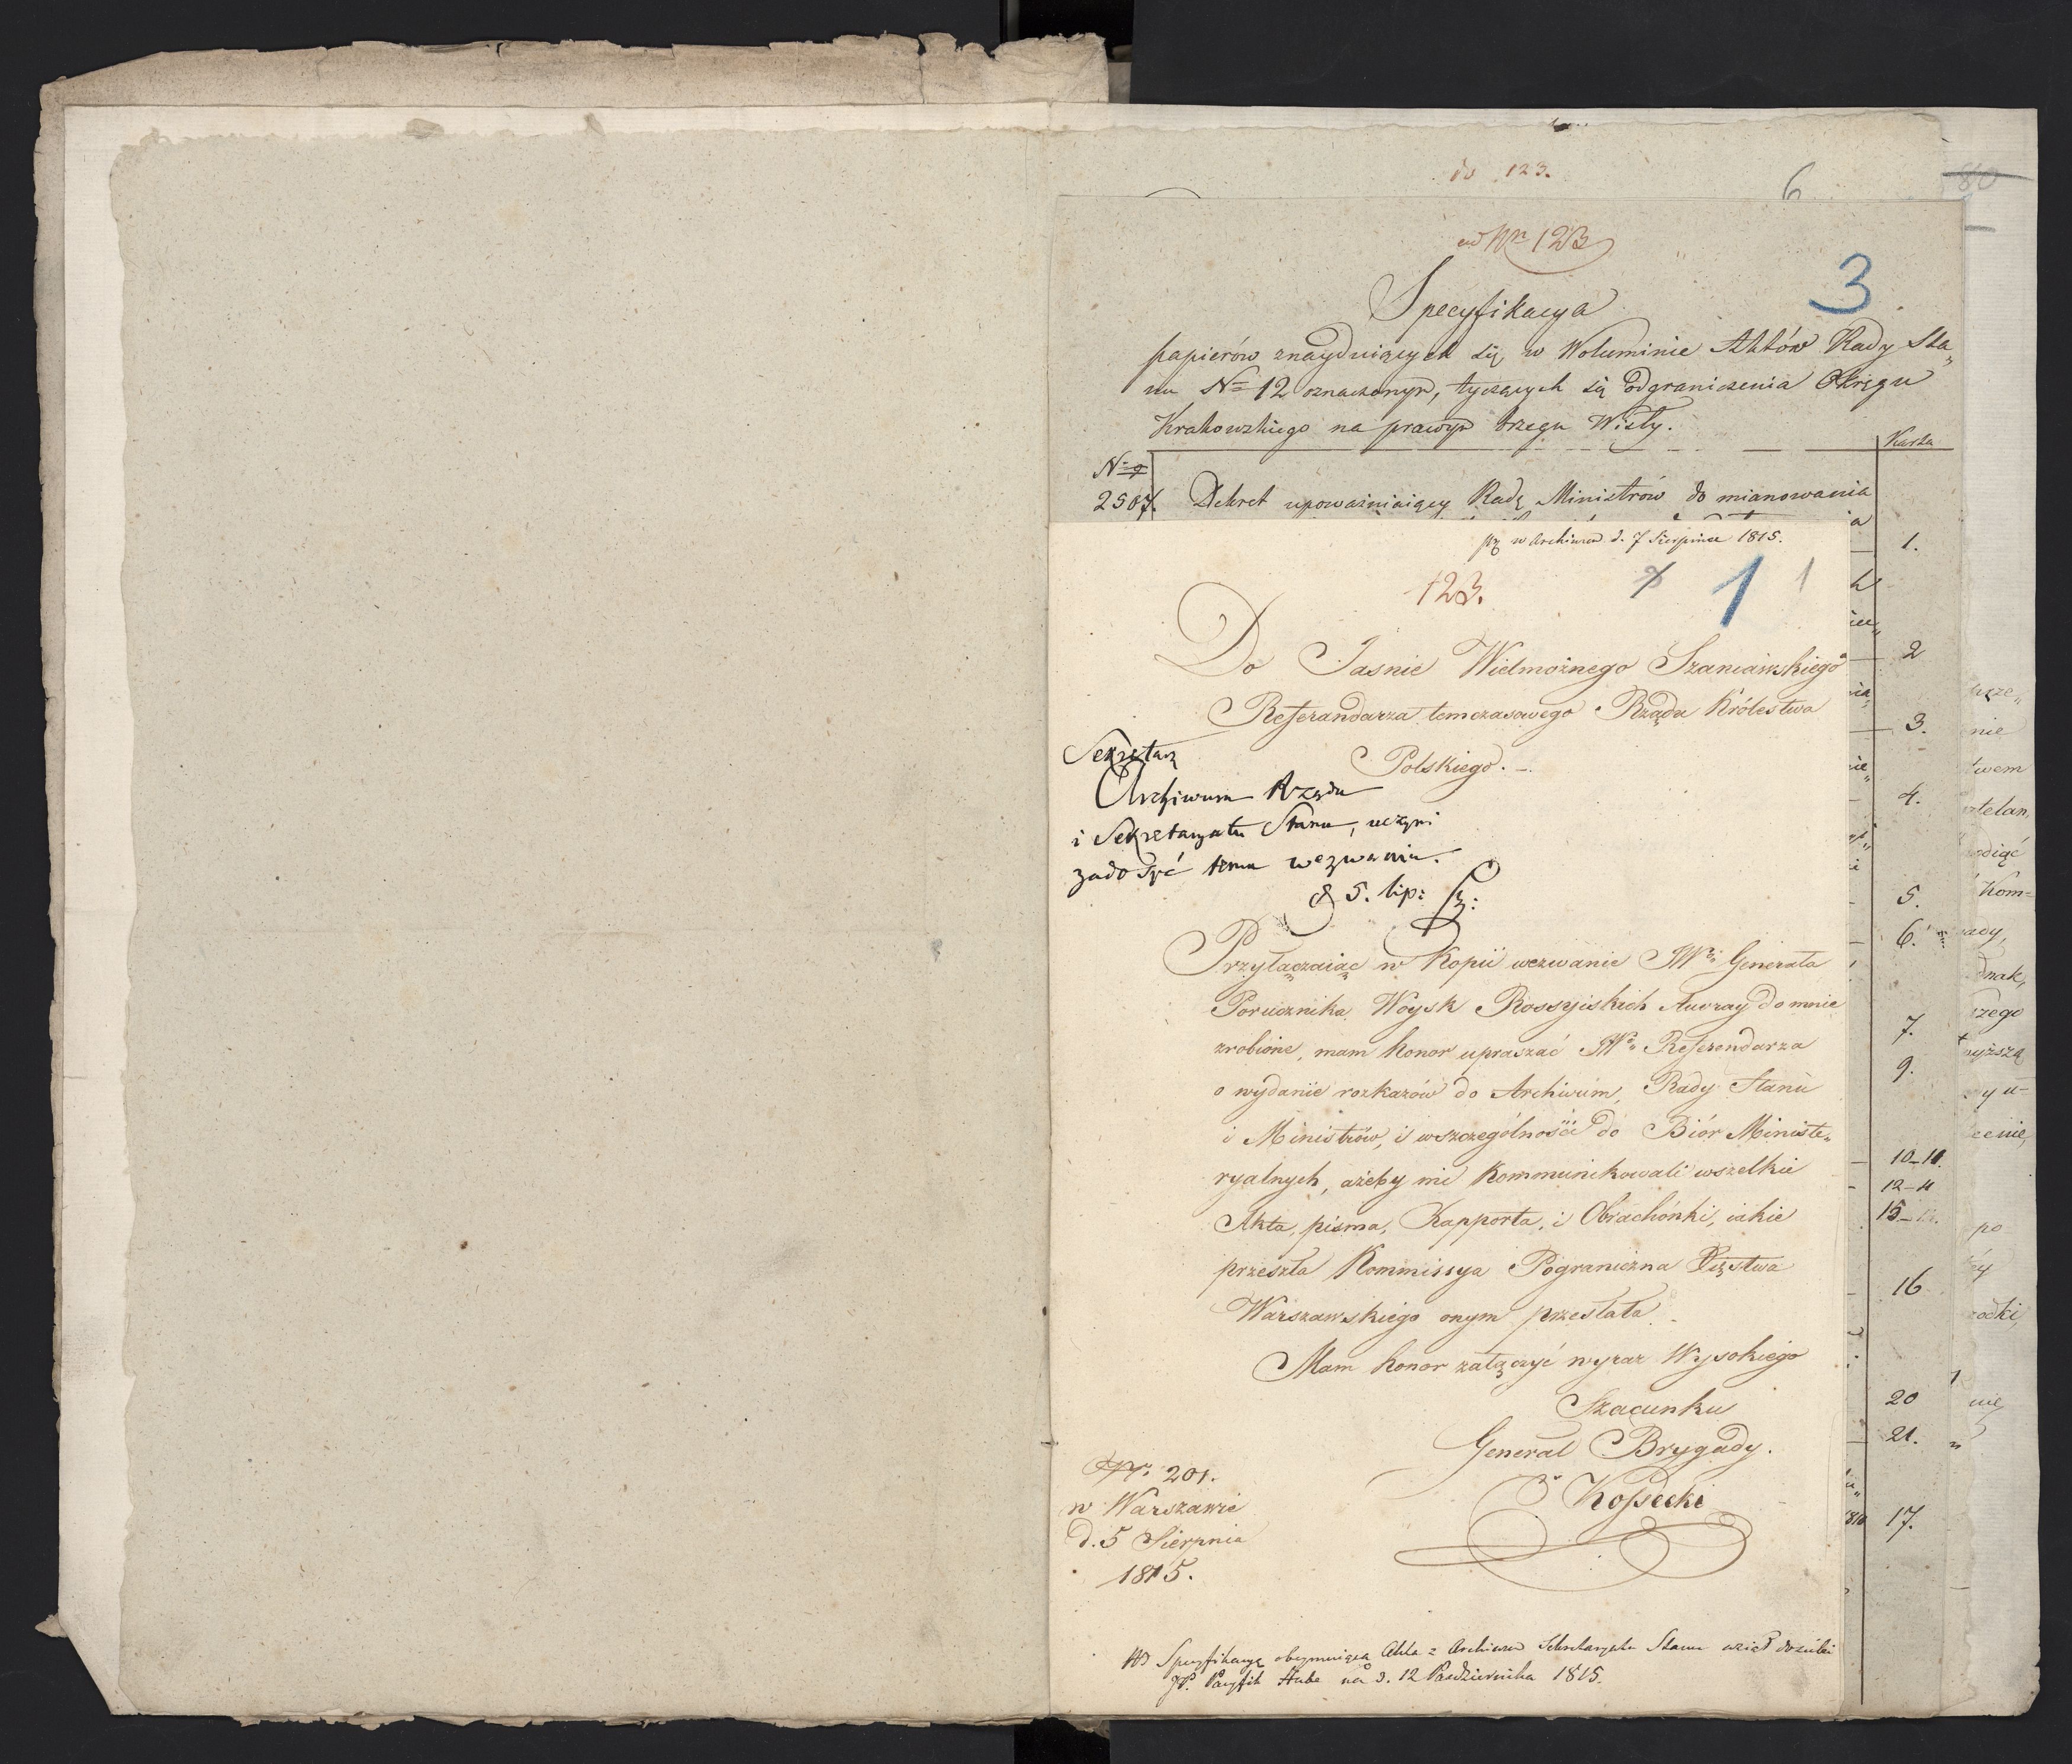 do 123.
6
80
ad Nr 123
3
Specyfikacya
papierów znayduiących się w Woluminie Aktów Rady Sta„
nu No 12 oznaczonym, tyczących się odgraniczenia Okręgu
Krakowskiego na prawym brzegu Wisły.
Karta
No
2507. Dekret upoważniaiący Radę Ministrów do mianowania
1.
2
3.
4.
5.
6.
7.
9.
10-11.
12-
15-
16
20
21.
17.
w Archiwum d. 7 Sierpnia 1815.
123.
1 1
Do Jasnie Wielmożnego Szaniawskiego
Referendarza temczasowego Rządu Królestwa
Polskiego. –
Sekretarz
Archiwum Rządu
i Sekretaryatu Stanu, uczyni
zadosyć temu wezwaniu.
d 5. lip:
Przyłączaiąc w Kopii wezwanie JWo Generała
Porucznika Woysk Rossyiskich Auvray do mnie
zrobione, mam honor upraszać JWo Referendarza
o wydanie rozkazów do Archiwum, Rady Stanu
i Ministrów, i wszczególności do Biór Ministe„
ryalnych, ażeby mi Kommunikowali wszelkie
Akta, pisma, Rapporta, i Obrachónki, iakie
przeszła Kommissya Pograniczna Xięstwa
Warszawskiego onym przesłała.
Mam honor załączyć wyraz Wysokiego
Szacunku
Generał Brygady.
Kossecki
No 201.
w Warszawie
d. 5 Sierpnia
1815.
Specyfikacyą obeymuiącą Akta z Archiwum Sekretaryatu Stanu wziął do siebie
JP. Hube na d. 12 Pazdziernika 1815.